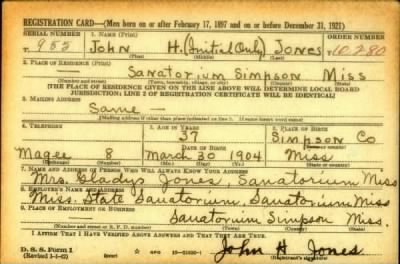 REGISTRATION CARD—(Men born on or after February 17, 1897 and on or before December 31, 1921)
SERIAL NUMBER 1. NAME (Print) ORDER NUMBER
T 955 John H. (Initial Only) Jones 10,280
(First) (Middle) (Last)
2. PLACE OF RESIDENCE (Print)
Sanatorium Simpson Miss
(Number and street) (Town, township, village, or city) (County) (State)
[THE PLACE OF RESIDENCE GIVEN ON THE LINE ABOVE WILL DETERMINE LOCAL BOARD
JURISDICTION; LINE 2 OF REGISTRATION CERTIFICATE WILL BE IDENTICAL]
3. MAILING ADDRESS
Same -
[Mailing address if other than place indicated on line 2. If same insert word same]
4. TELEPHONE 5. AGE IN YEARS 6. PLACE OF BIRTH
37 Simpson Co
DATE OF BIRTH (Town or county)
Magee 8 March 30 1904 Miss
(Exchange) (Number) (Mo.) (Day) (Yr.) (State or country)
7. NAME AND ADDRESS OF PERSON WHO WILL ALWAYS KNOW YOUR ADDRESS
Mrs. Gladys Jones Sanatorium Miss
8. EMPLOYER'S NAME AND ADDRESS
Miss. State Sanatorium, Sanatorium, Miss
9. PLACE OF EMPLOYMENT OR BUSINESS
Sanatorium Simpson Miss.
(Number and street or R. F. D. number) (Town) (County) (State)
I AFFIRM THAT I HAVE VERIFIED ABOVE ANSWERS AND THAT THEY ARE TRUE.
D. S. S. Form 1
(Revised 1-1-42) GPO John H Jones
(Registrant's signature)